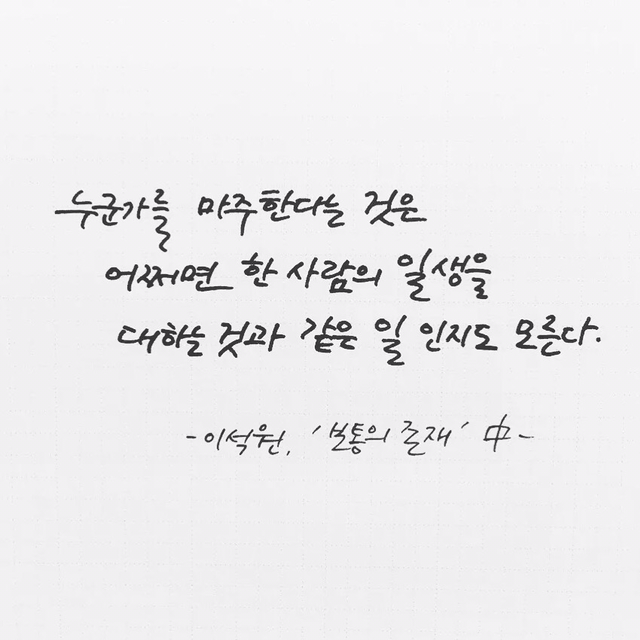 누군가를 마주한다는 것은
어쩌면 한 사람의 일생을
대하는 것과 같은 일 인지도 모른다.
-이석원, '보통의 존재' 中-